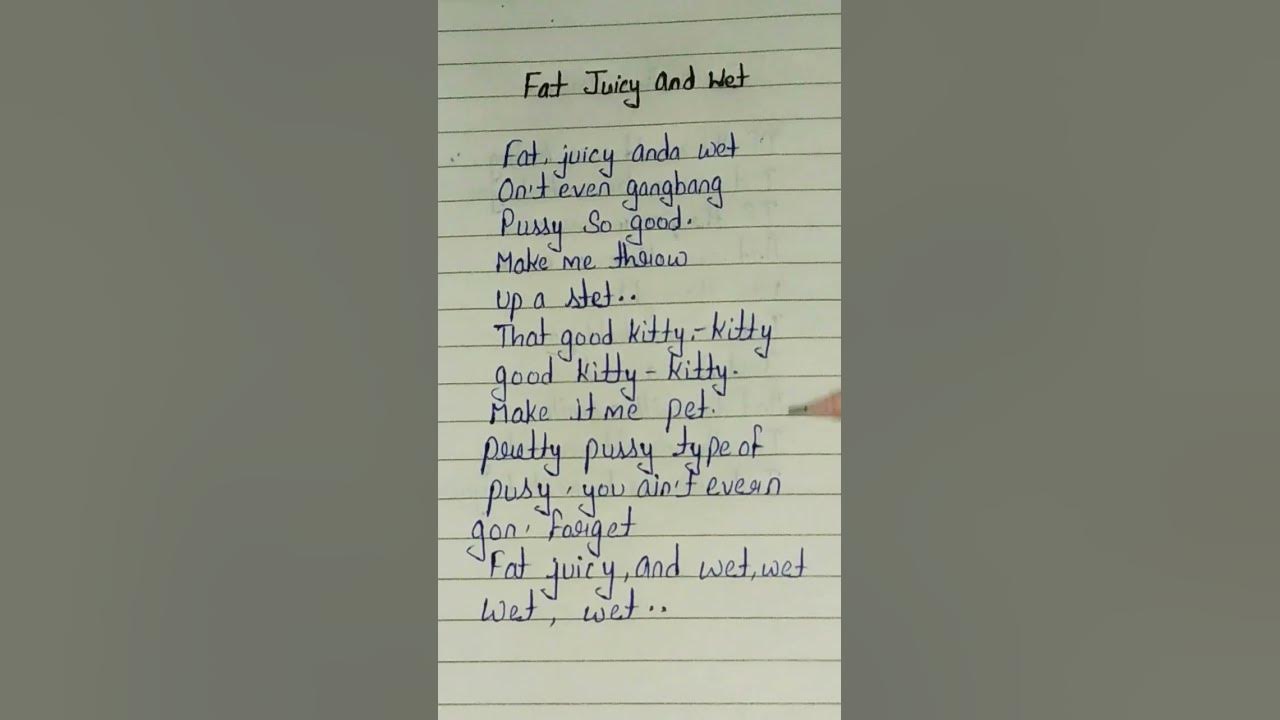 Fat Juicy and Wet
Fat, juicy anda wet
On't even gangbang
Pussy So good.
Make me throw
up a stet..
That good kitty,-kitty
good kitty-kitty.
Make it me pet.
pretty pussy type of
pusy, you ain't even
gon, forget
Fat juicy, and wet, wet
wet, wet..